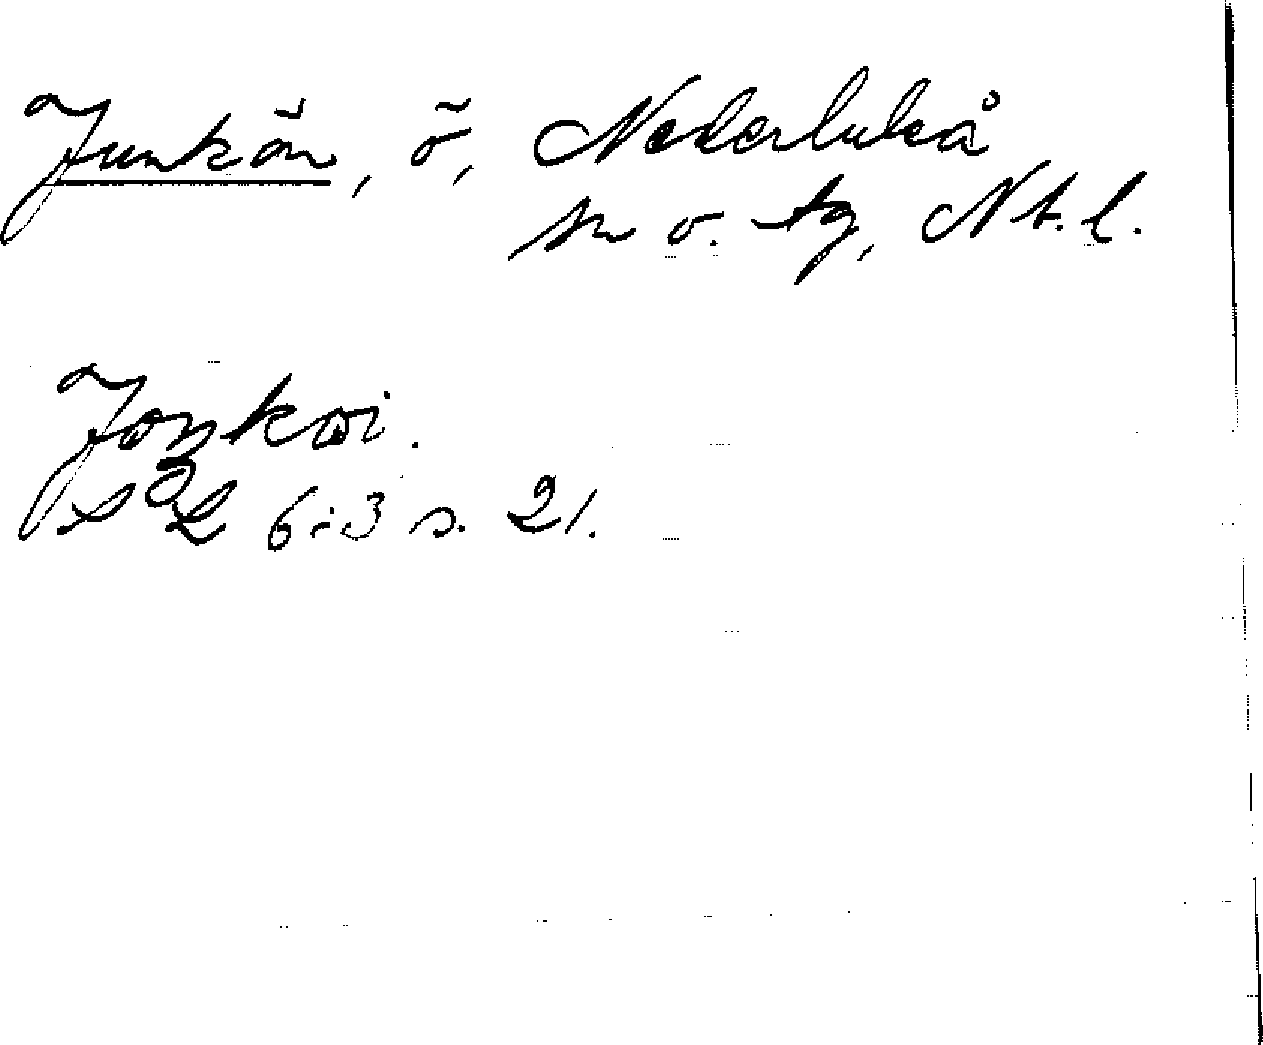 Junkön, ö, Nederluleå
sn o. tg, Nb. l.
Joŋköi.
SOL 6:3 s. 21.